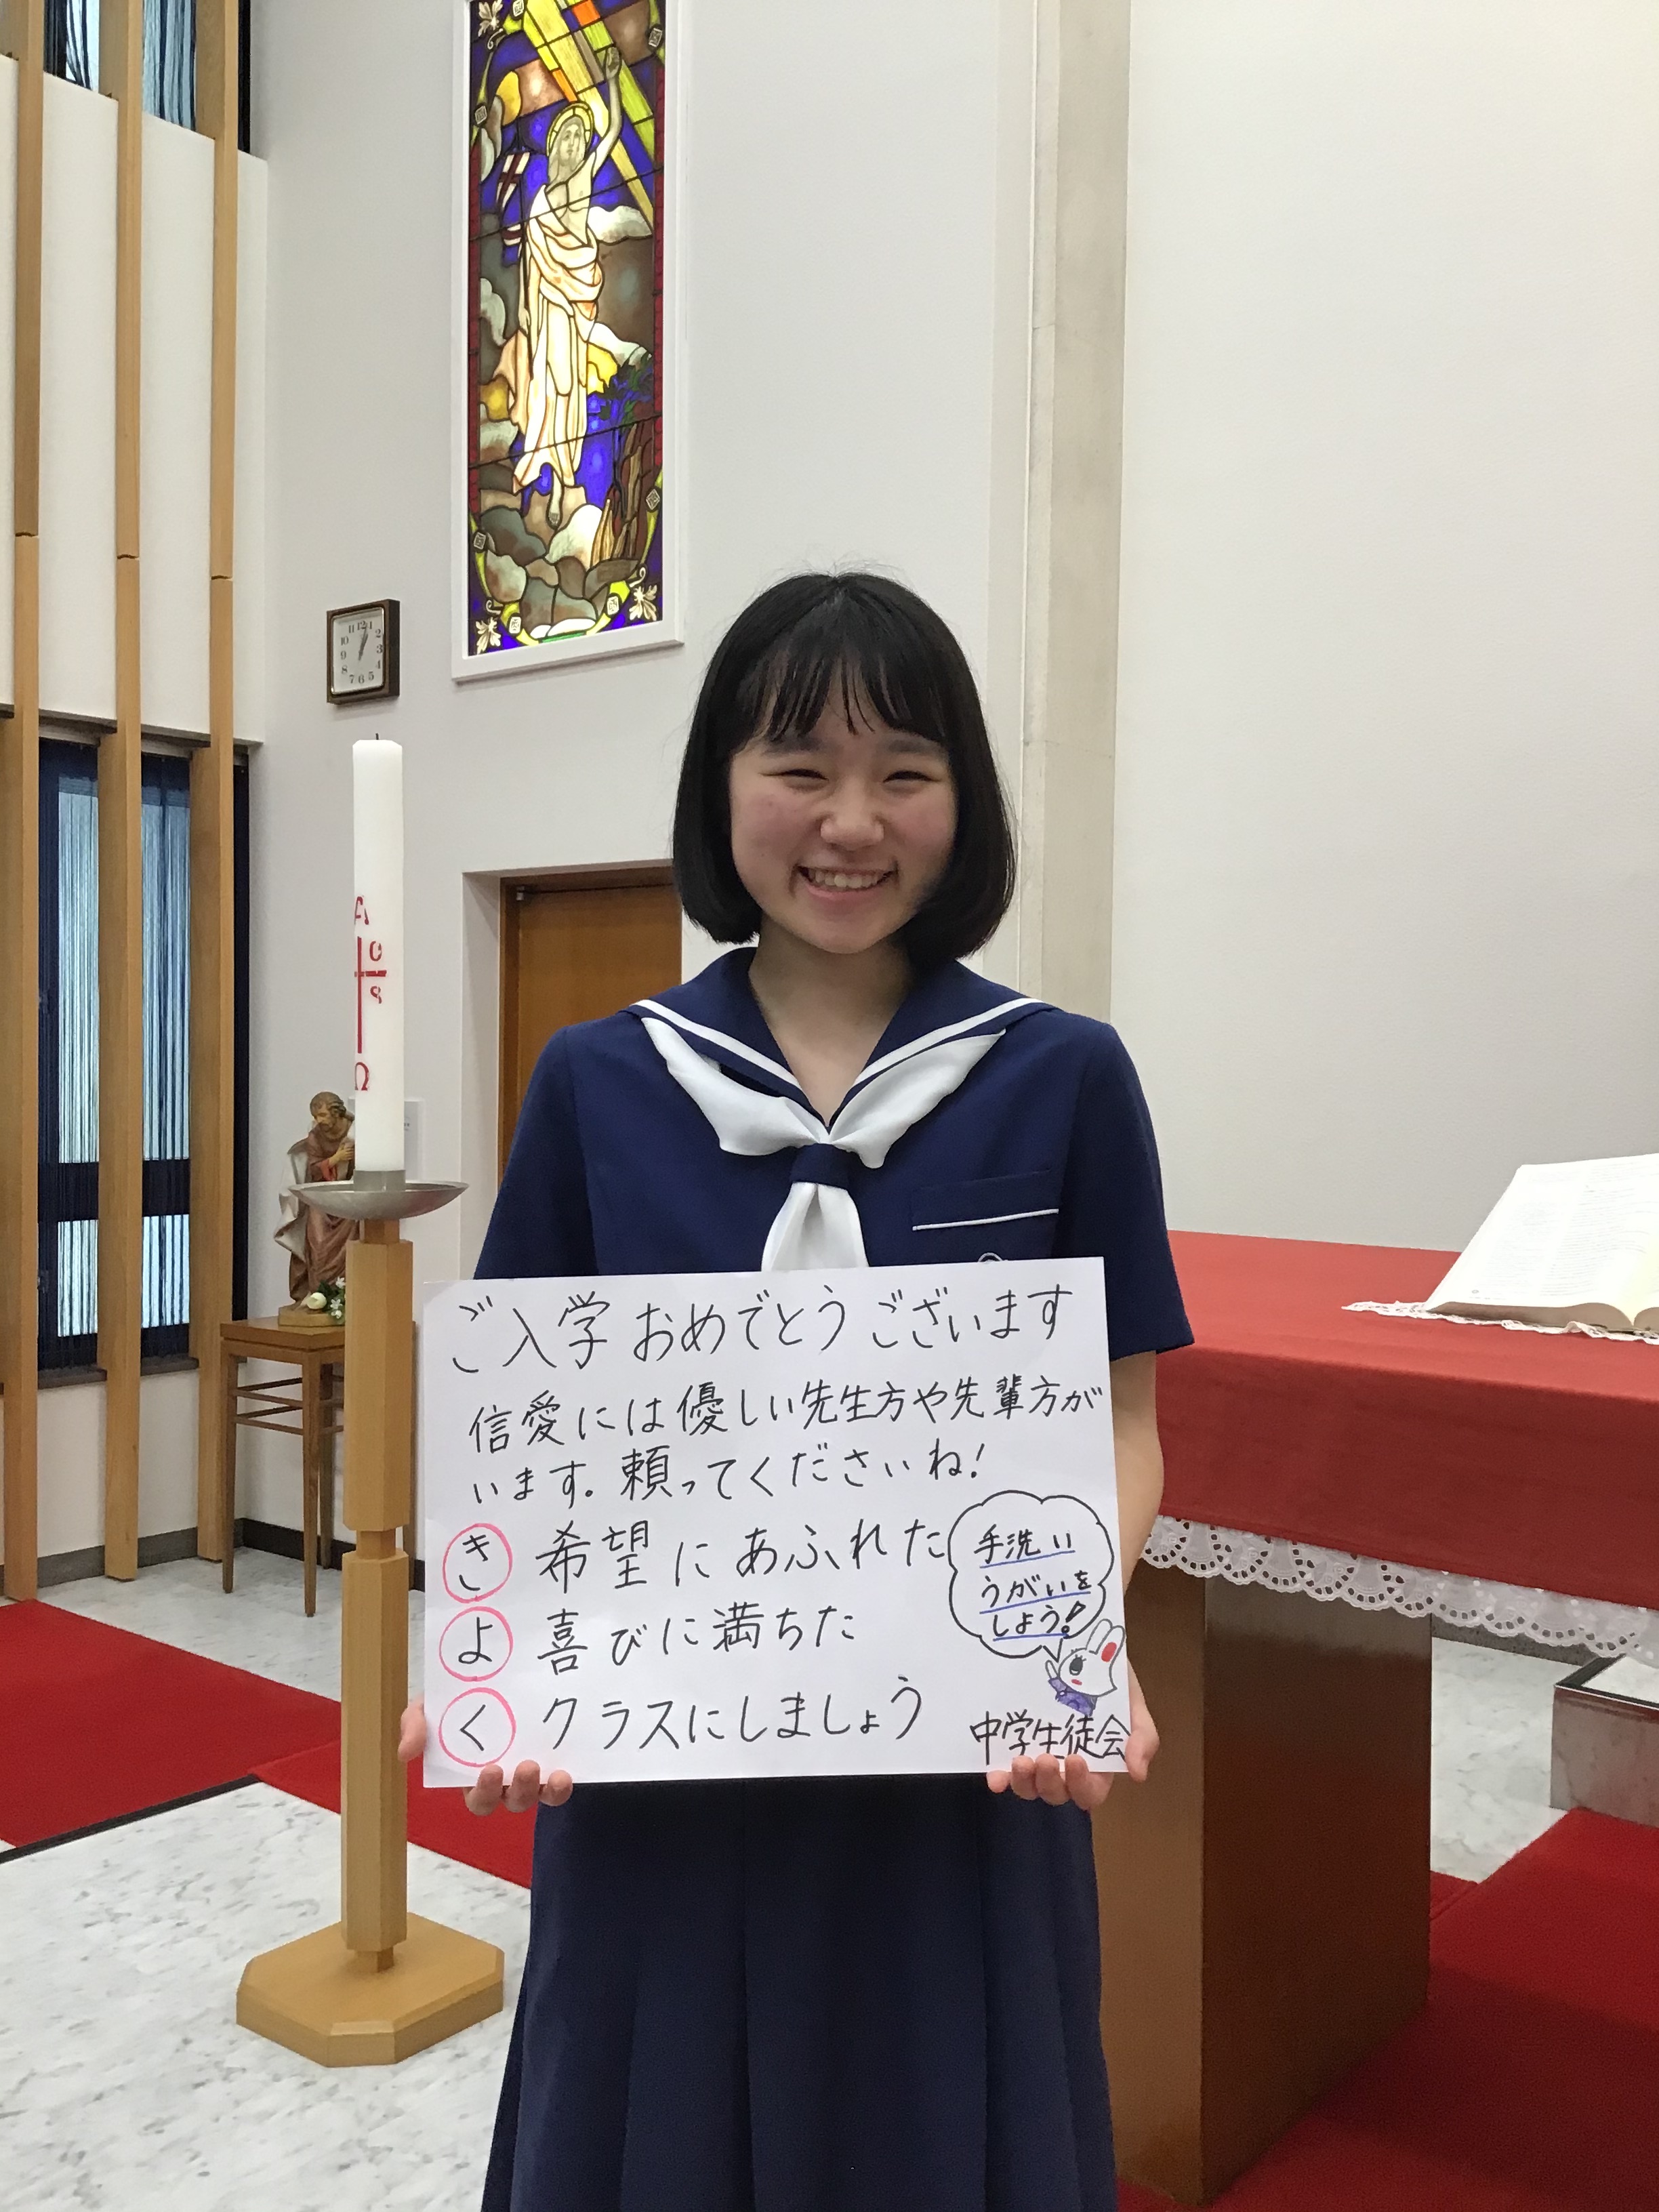 ご入学 おめでとう ございます
信愛には優しい先生方や先輩方が
います。頼ってくださいね!
き 希望にあふれた
よ 喜びに満ちた
く クラスにしましょう
手洗い
うがいを
しよう!
中学生徒会
A
Ω
11 12 1
10 2
9 3
8 4
7 6 5